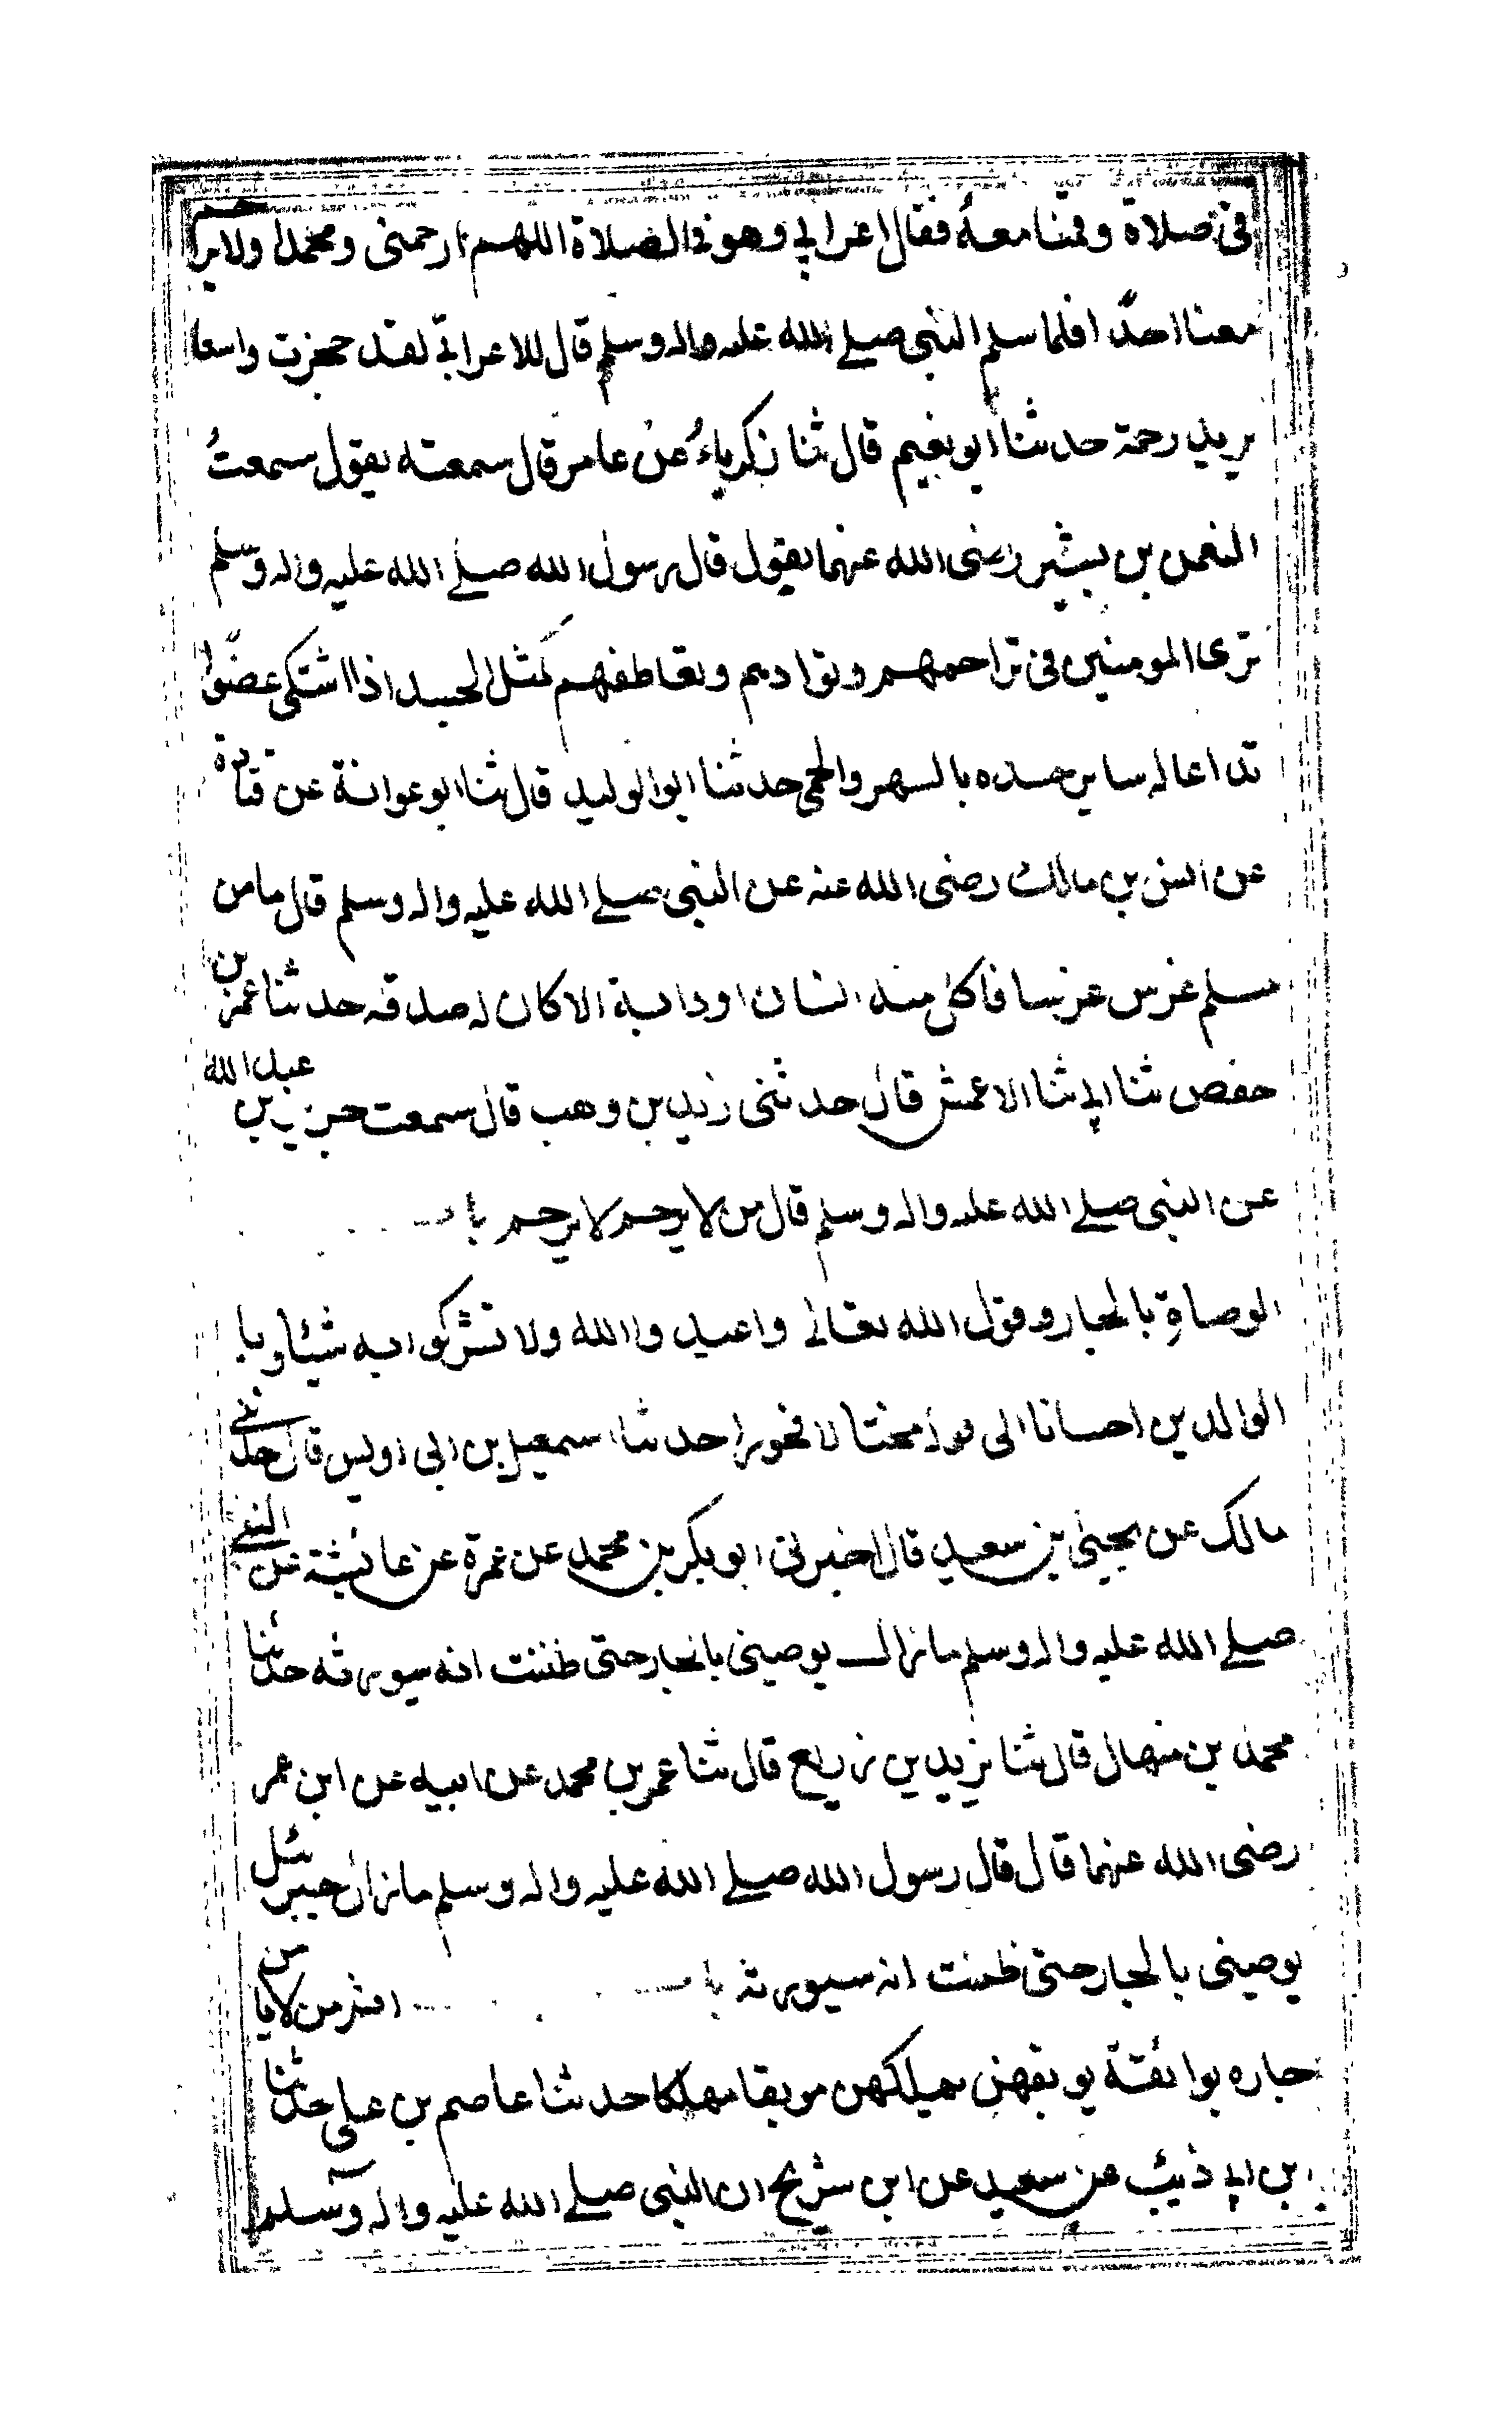 في صلاة وقمنا معه فقال اعرابي وهو في الصلاة اللهم ارحمني ومحمدا ولا ترحم
معنا احدا فلما سلم النبي صلے الله عليه واله وسلم قال للاعرابي لقد حجرت واسعا
يريد رحمة حدثنا ابو نعيم قال ثنا زكرياء عن عامر قال سمعته يقول سمعت
النعمن بن بشير رضى الله عنهما يقول قال رسول الله صلے الله عليه واله وسلم
ترى المومنين في تراحمهم وتوادهم وتعاطفهم كمثل الجسد اذا اشتكى عضوا
تداعا له ساير جسده بالسهر والحمى حدثنا ابو الوليد قال ثنا ابو عوانة عن قتادة
عن انس بن مالك رضى الله عنه عن النبي صلے الله عليه واله وسلم قال ما من
مسلم غرس غرسا فاكل منه انسان او دابة الا كان له صدقه حدثنا عمر بن
حفص ثنا ابي ثنا الاعمش قال حدثنى زيد بن وهب قال سمعت جرير بن عبد الله
عن النبي صلے الله عليه واله وسلم قال من لا يرحم لا يرحم باب
الوصاة بالجار وقول الله تعالى واعبدوا الله ولا تشركوا به شيئا وبا
الوالدين احسانا الى قوله مختالا فخورا حدثنا اسمعيل بن ابي اويس قال حدثنى
مالك عن يحيى بن سعيد قال اخبرنى ابو بكر بن محمد عن عمرة عن عائشة عن النبي
صلے الله عليه واله وسلم ما زال يوصينى بالجار حتى ظننت انه سيورثه حدثنا
محمد بن منهال قال ثنا يزيد بن زريع قال ثنا عمر بن محمد عن ابيه عن ابن عمر
رضى الله عنهما قال قال رسول الله صلے الله عليه واله وسلم ما زال جبرئيل
يوصينى بالجار حتى ظننت انه سيورثه باب اثم من لا يامن
جاره بوائقة يوبقهن يهلكهن موبقا مهلكا حدثنا عاصم بن على حدثنا
بن ابي ذئب عن سعيد عن ابن شريح ان النبي صلے الله عليه واله وسلم